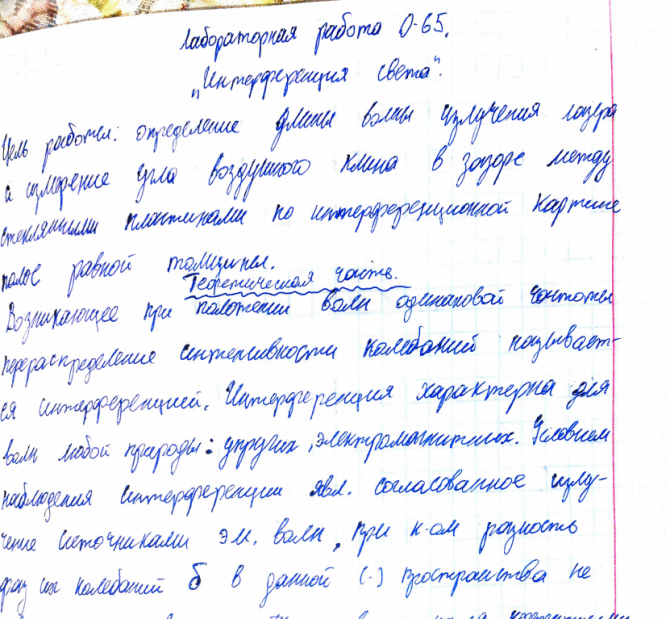 Лабораторная работа О-65.
„Интерференция света".
Цель работы: определение длины волны излучения лазера
и измерение угла воздушного клина в зазоре между
стеклянными пластинами по интерференционной картине
полос равной толщины.
Теоретическая часть.
Возникающее при наложении волн одинаковой частоты
перераспределение интенсивности колебаний называет-
ся интерференцией. Интерференция характерна для
волн любой природы: упругих, электромагнитных. Условием
наблюдения интерференции явл. согласованное излу-
чение источниками эм. волн, при к-ом разность
фаз их колебаний δ в данной (·) пространства не